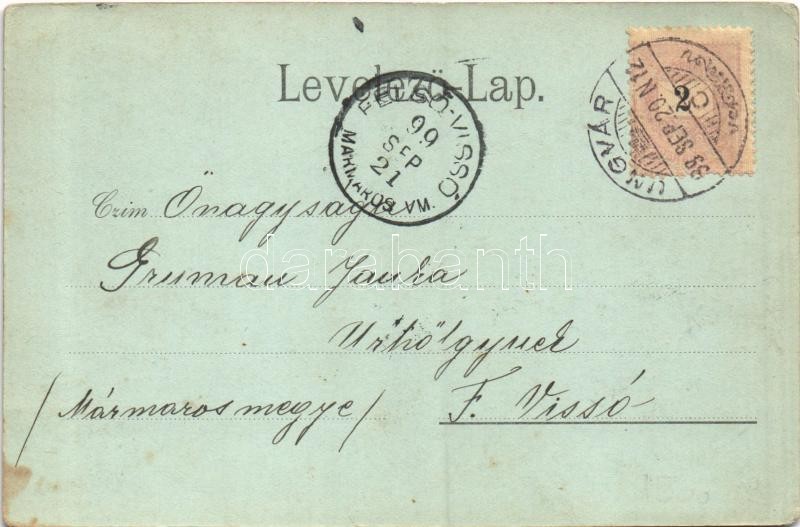 Levelező-Lap.
FELSŐ-VISSÓ
99
SEP
21
MÁRMAROS VM.
UNGVÁR
99 SEP 20 N 12
2
Czim. Önagysága
Gruman Janka
Urhölgynek
/Mármarosmegye/ F. Vissó
darabanth